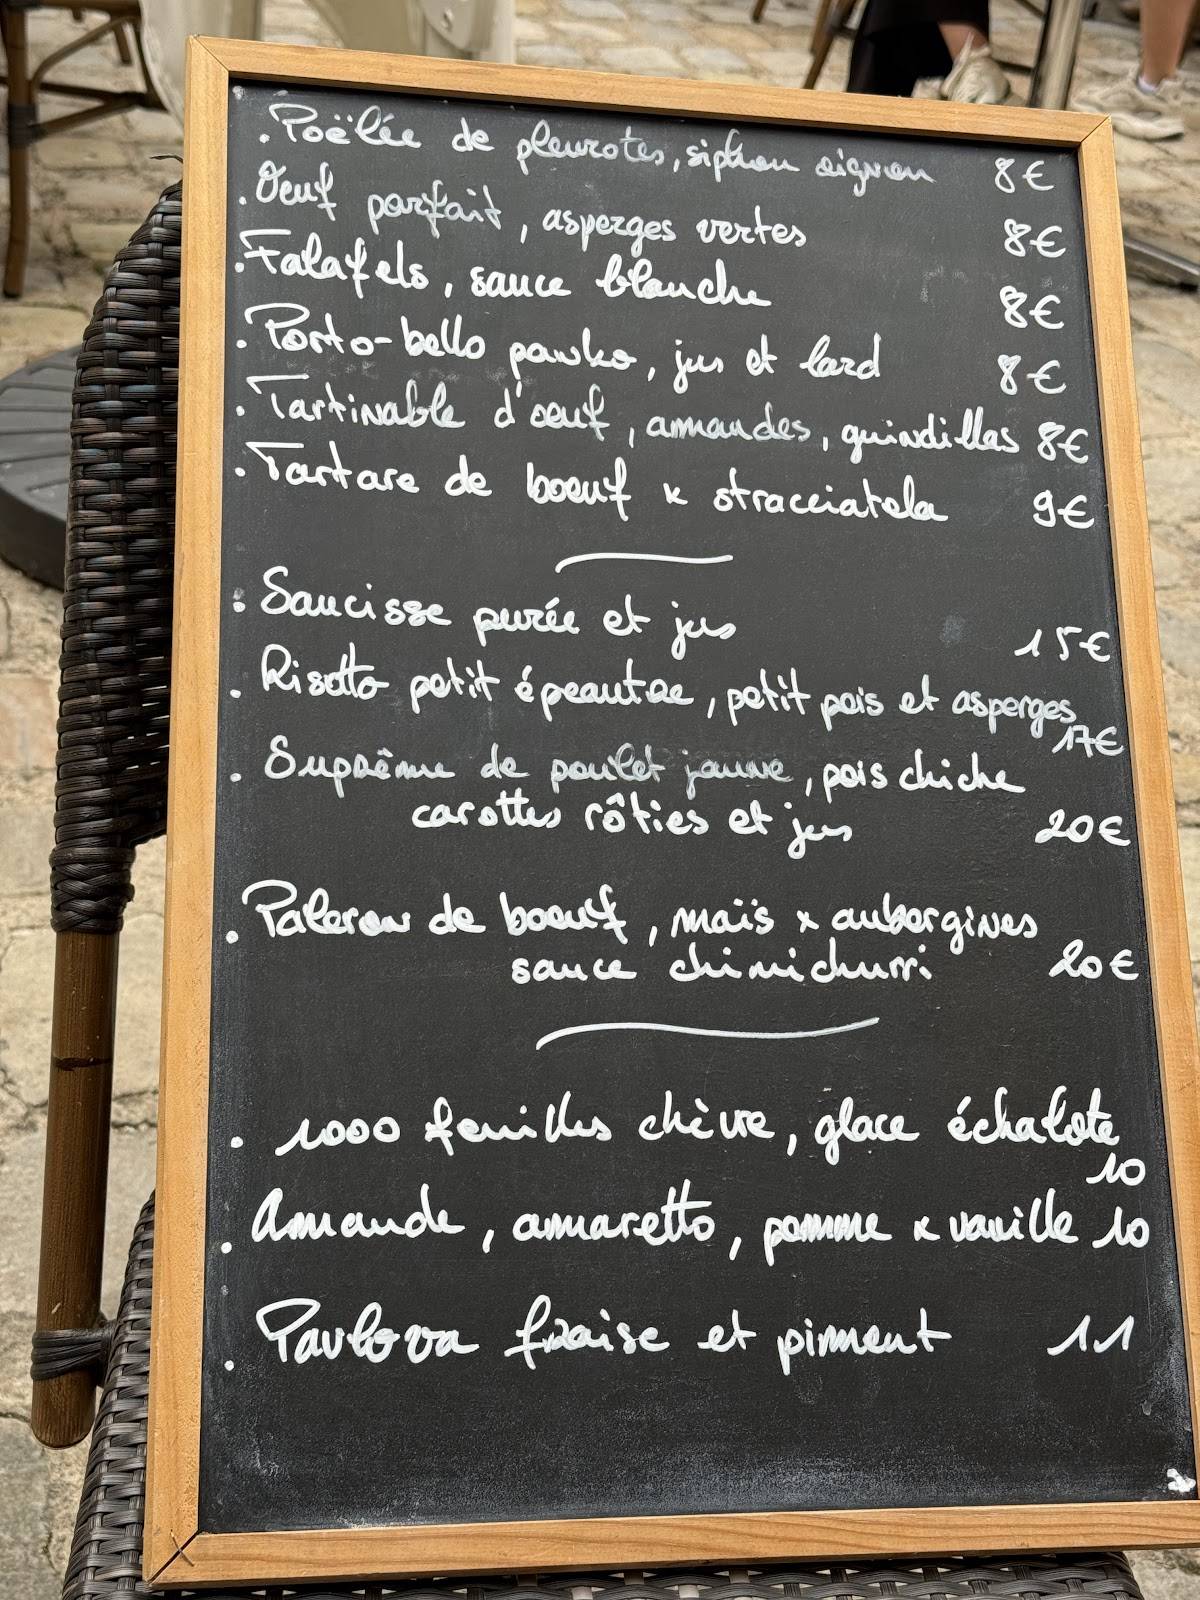 . Poëlée de pleurotes, siphon oignon 8€
. Oeuf parfait, asperges vertes 8€
. Falafels, sauce blanche 8€
. Porto-bello panko, jus et lard 8€
. Tartinable d'oeuf, amandes, guindillas 8€
. Tartare de boeuf x stracciatela 9€
. Saucisse purée et jus 15€
. Risotto petit épeautre, petit pois et asperges
17€
. Suprême de poulet jaune, pois chiche
carottes rôties et jus 20€
. Paleron de boeuf, maïs x aubergines
sauce chimichurri 20€
. 1000 feuilles chèvre, glace échalote
10
. Amande, amaretto, pomme x vanille 10
. Pavlova fraise et piment 11